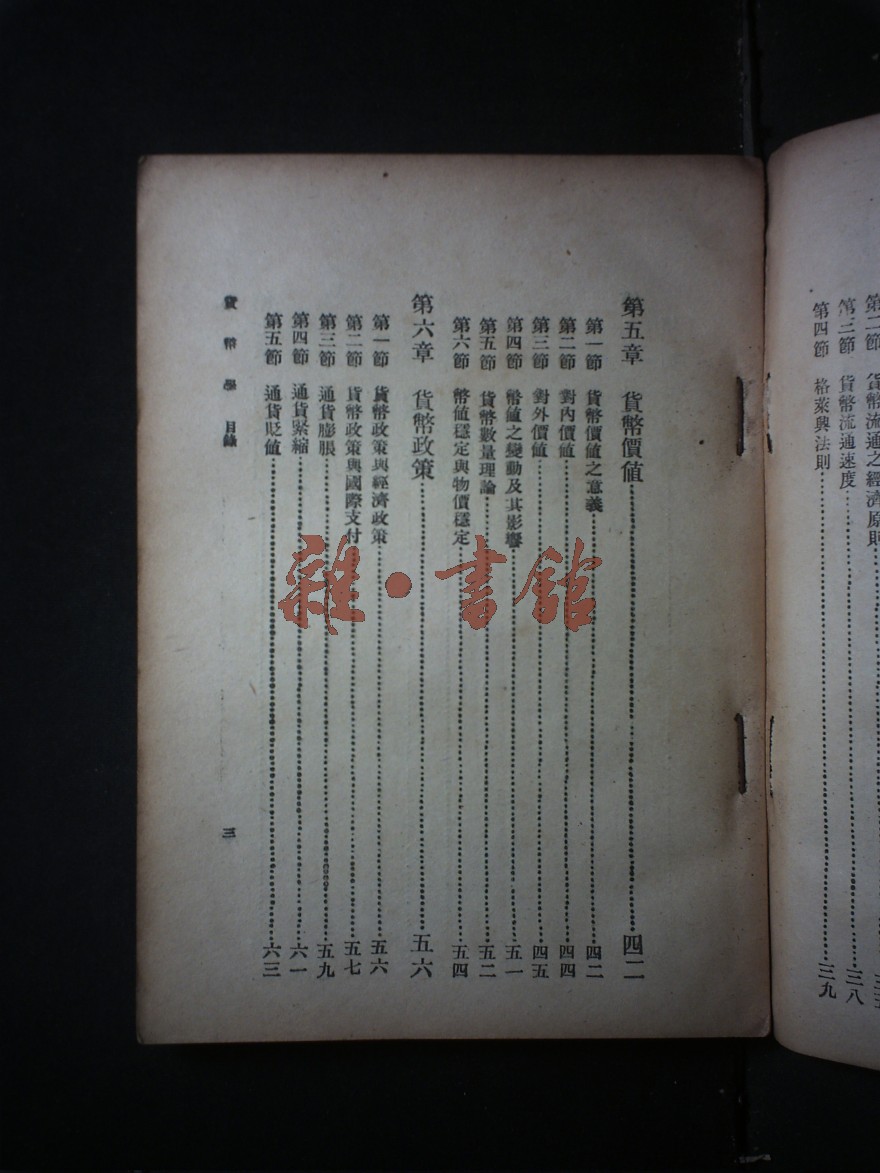 第二節　貨幣流通之經濟原則
第三節　貨幣流通速度⋯⋯三八
第四節　格萊興法則⋯⋯三九
第五章　貨幣價値⋯⋯四二
第一節　貨幣價値之意義⋯⋯四二
第二節　對內價値⋯⋯四四
第三節　對外價値⋯⋯四五
第四節　幣値之變動及其影響⋯⋯五一
第五節　貨幣數量理論⋯⋯五二
第六節　幣値穩定與物價穩定⋯⋯五四
第六章　貨幣政策⋯⋯五六
第一節　貨幣政策與經濟政策⋯⋯五六
第二節　貨幣政策與國際支付⋯⋯五七
第三節　通貨膨脹⋯⋯五九
第四節　通貨緊縮⋯⋯六一
第五節　通貨貶値⋯⋯六三
貨幣學　目錄　三
雜·書館